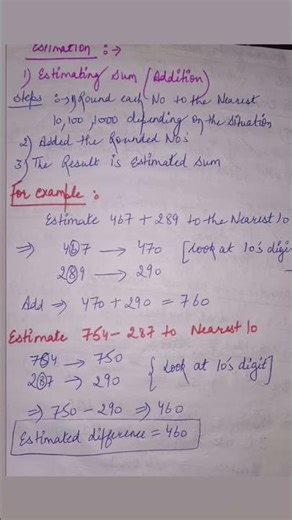 Estimation : :→
1) Estimating Sum (Addition)
Steps :→ 1) Round each No to the Nearest
10, 100, 1000 depending on the situation
2) Added the Rounded No's
3) The Result is Estimated Sum
For example :
Estimate 467 + 289 to the Nearest 10
⇒ 467 → 470 [Look at 10's digit
289 → 290
Add ⇒ 470 + 290 = 760
Estimate 754 - 287 to Nearest 10
754 → 750
287 → 290 [Look at 10's digit]
⇒ 750 - 290 ⇒ 460
Estimated difference = 460